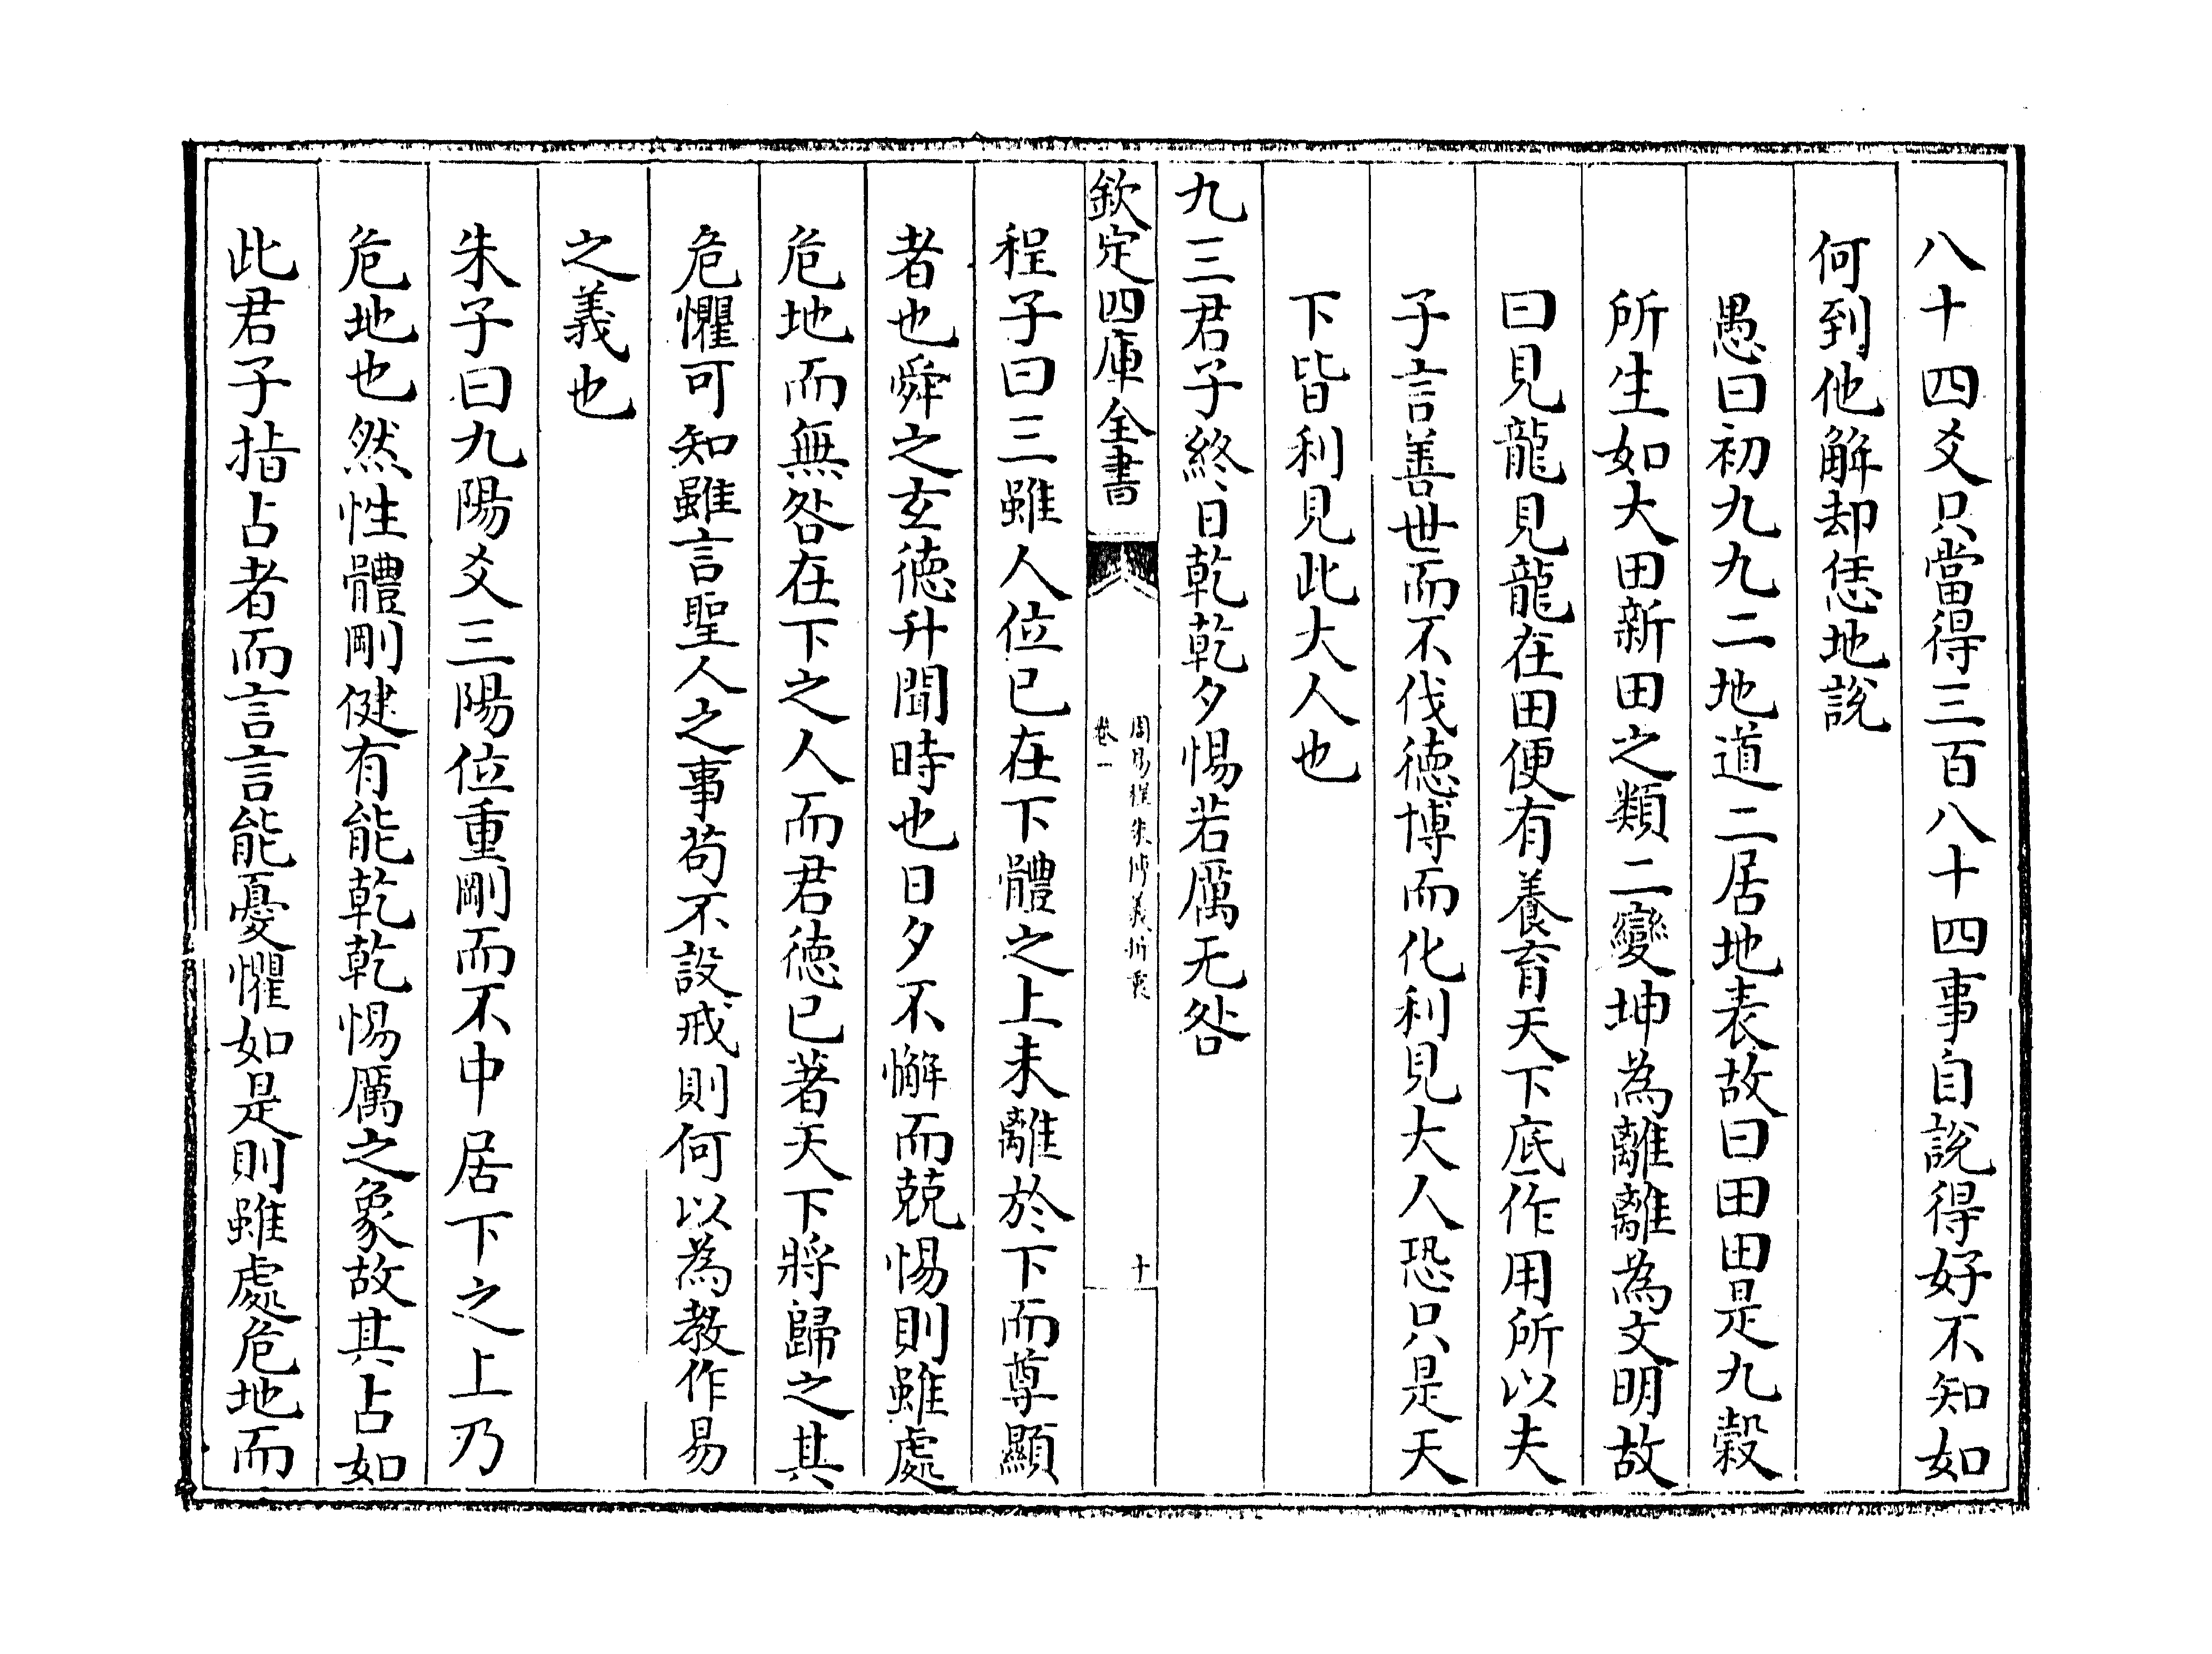 八十四爻只當得三百八十四事自說得好不知如
何到他解却恁地說
愚曰初九九二地道二居地表故曰田田是九穀
所生如大田新田之類二變坤為離離為文明故
曰見龍見龍在田便有養育天下底作用所以夫
子言善世而不伐徳博而化利見大人恐只是天
下皆利見此大人也
九三君子終日乾乾夕惕若厲无咎
欽定四庫全書
周易程朱傳義折衷
卷一
十
程子曰三雖人位已在下體之上未離於下而尊顯
者也舜之玄徳升聞時也日夕不懈而兢惕則雖處
危地而無咎在下之人而君徳已著天下將歸之其
危懼可知雖言聖人之事苟不設戒則何以為教作易
之義也
朱子曰九陽爻三陽位重剛而不中居下之上乃
危地也然性體剛健有能乾乾惕厲之象故其占如
此君子指占者而言言能憂懼如是則雖處危地而